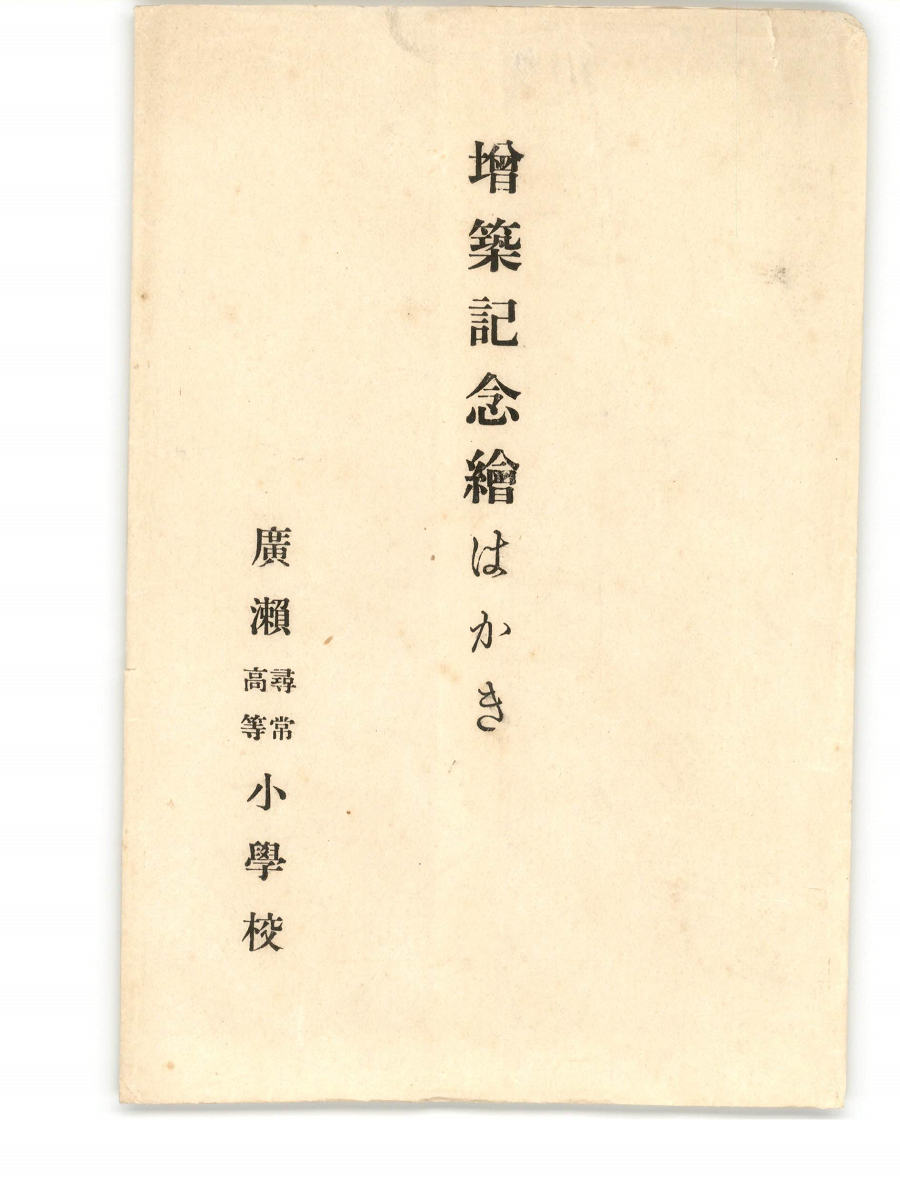 增築記念繪はかき
廣瀨尋常高等小學校